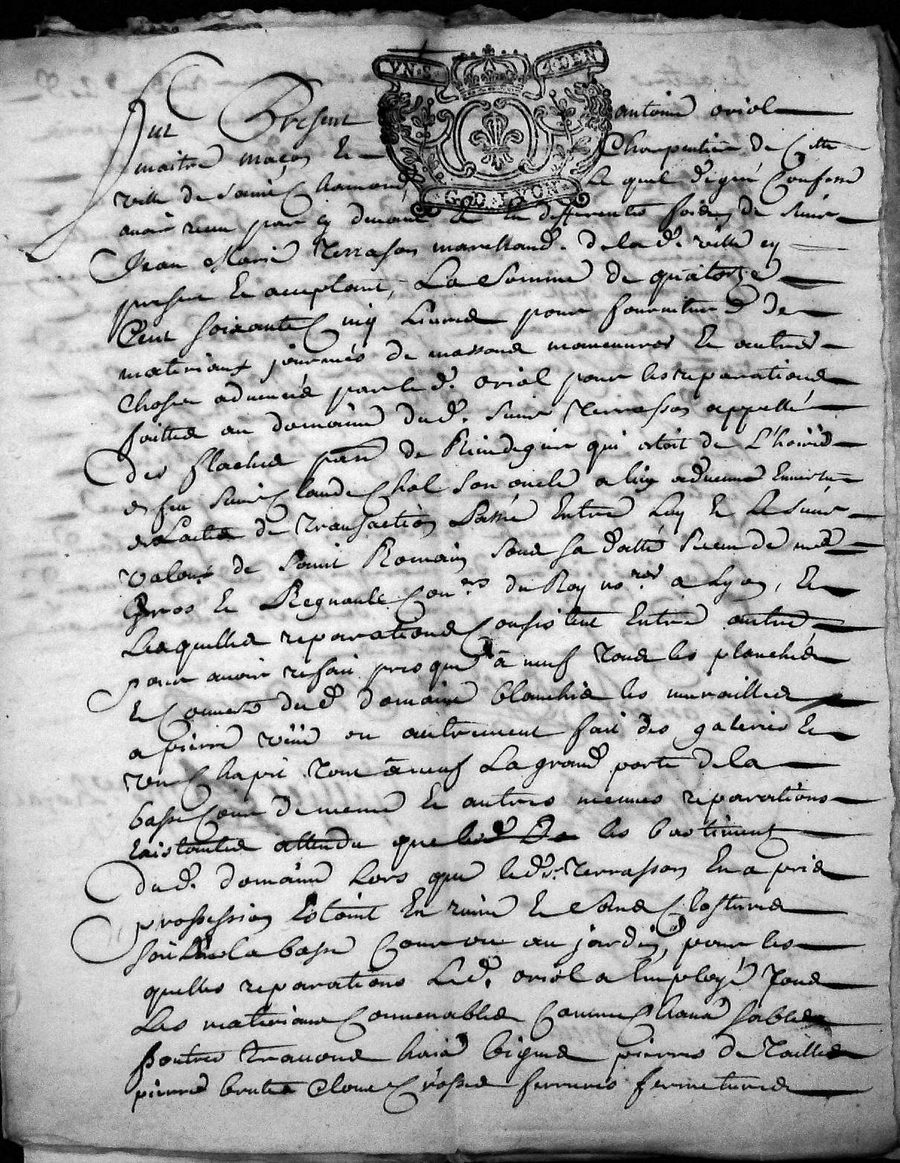 VN.S 4.DEN
G.D.LYON
Fut Present antoine oriol
maitre maçon et Charpentier de Cette
ville de Saint Chamond le quel de gré Confesse
avoir reçu par cy devant et en differentes fois de Sieur
Jean Marie Terrasson marchand. de la d. ville cy
present et acceptant, La Somme de quatorze
Cent Soixante Cinq Livres pour fourniture de
materiaux journés de massons maneuvres et autres
Choses advancés par le d. oriol pour les reparations
faittes au domaine dud. Sieur Terrasson appellé
des flaches parr. de qui etoit de L'hoirie
de feu Sieur Claude Chol Son oncle a luy advenu En vertu
de Lacte de Transaction Passé Entre Luy et Le Sieur
Valous de Saint Romain Sous Sa datte Receu de mes
Gros et Regnault Con.rs du Roy no.res a Lyon, Et
Lesquelles reparations Consistent Entre autres
pour avoir refait presque à neuf Tous les planchés
et Couverts dud. domaine blanchis les murailles
a pierre vüe ou autrement fait des galeries et
un Chapit Tout a neuf La grand porte de la
basse Cour de meme et autres menues reparations
Existantes attendu que les bastiments
dud. domaine Lors que led. Sr. Terrasson En a pris
possession Estoint En ruine et Sans Clostures
soit La basse Cour ou au jardin, pour les
quelles reparations Led. oriol a Employé Tous
Les materiaux Convenables Comme Chaux Sables
poutres Travons bigues pierres de Tailles
pierres brutes Cloux Crosses ferrures fermetures